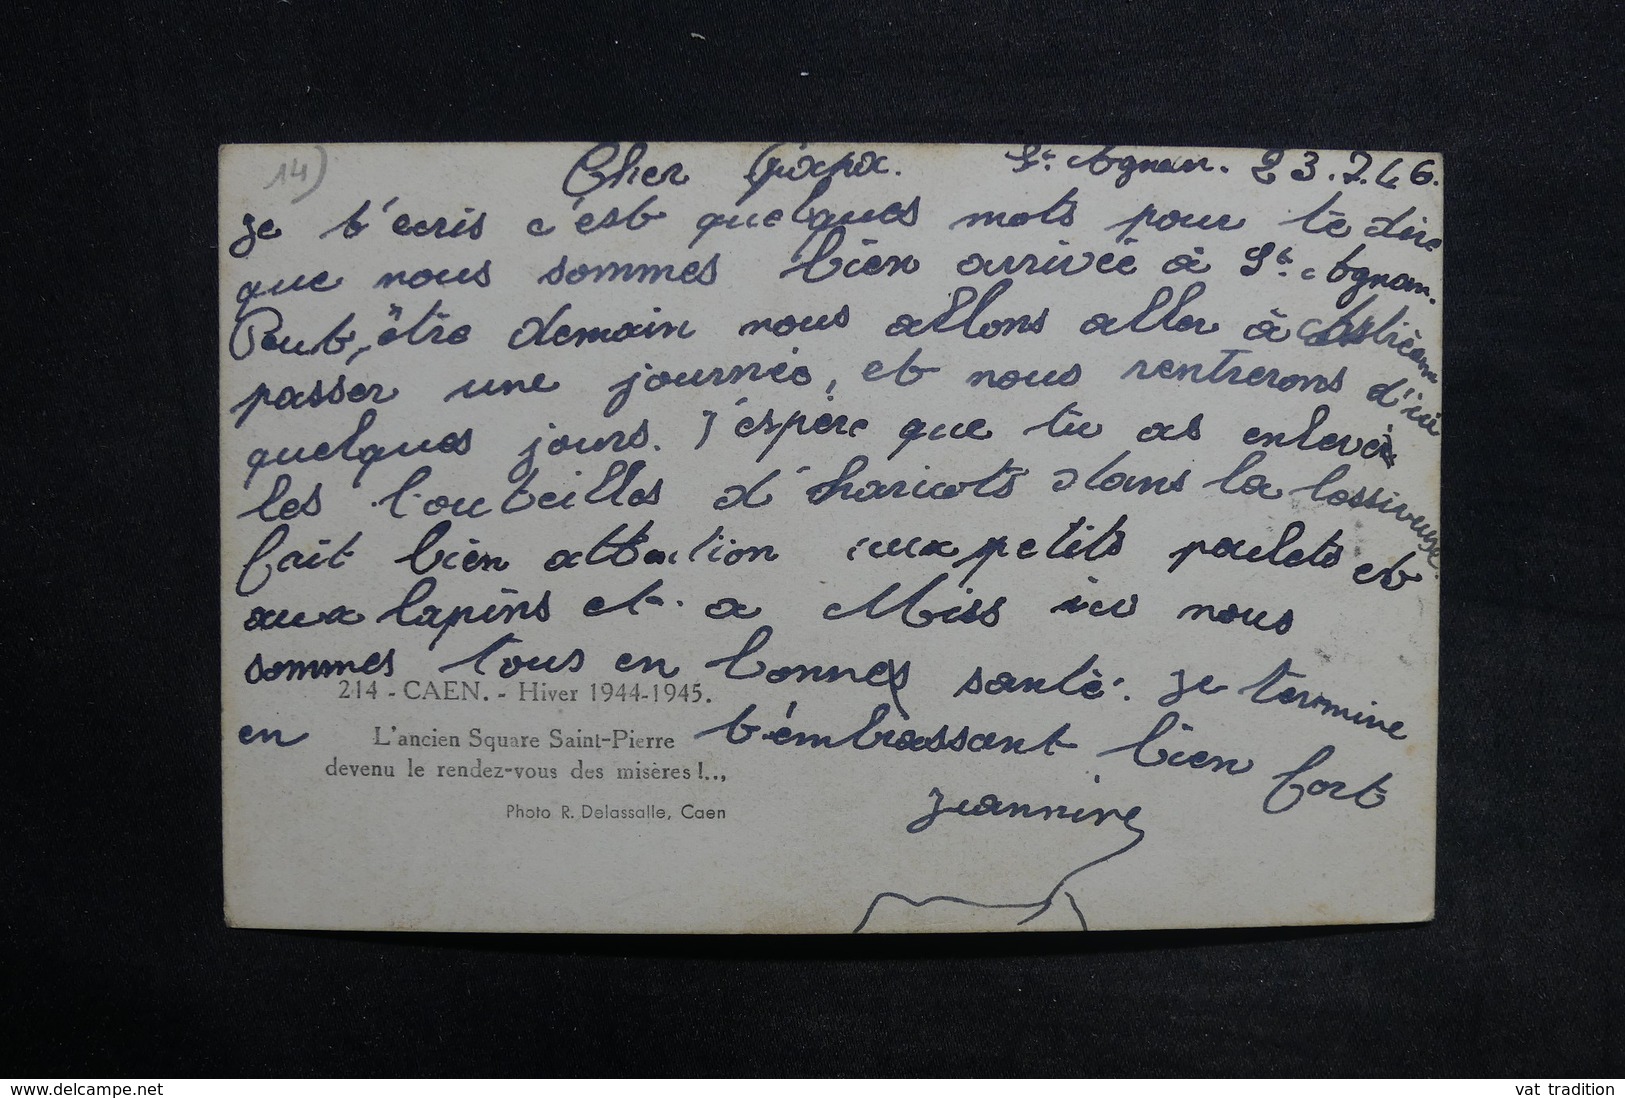 14)
Cher Papa. St. Agnan. 23.7.46.
je t'ecris c'est quelques mots pour te dire
que nous sommes bien arrivée à St. Agnan.
Peut-être demain nous allons aller à
passer une journée, et nous rentrerons d'ici
quelques jours. J'espère que tu as enlever
les bouteilles d'haricots dans la lessiveuse.
fait bien attention aux petits poulets et
aux lapins et a Miss ici nous
sommes tous en bonnes santé. je termine
214 - CAEN. - Hiver 1944-1945.
en t'embrassant bien fort
L'ancien Square Saint-Pierre
devenu le rendez-vous des misères !..,
Jeannine
Photo R. Delassalle, Caen
www.delcampe.net
vat tradition